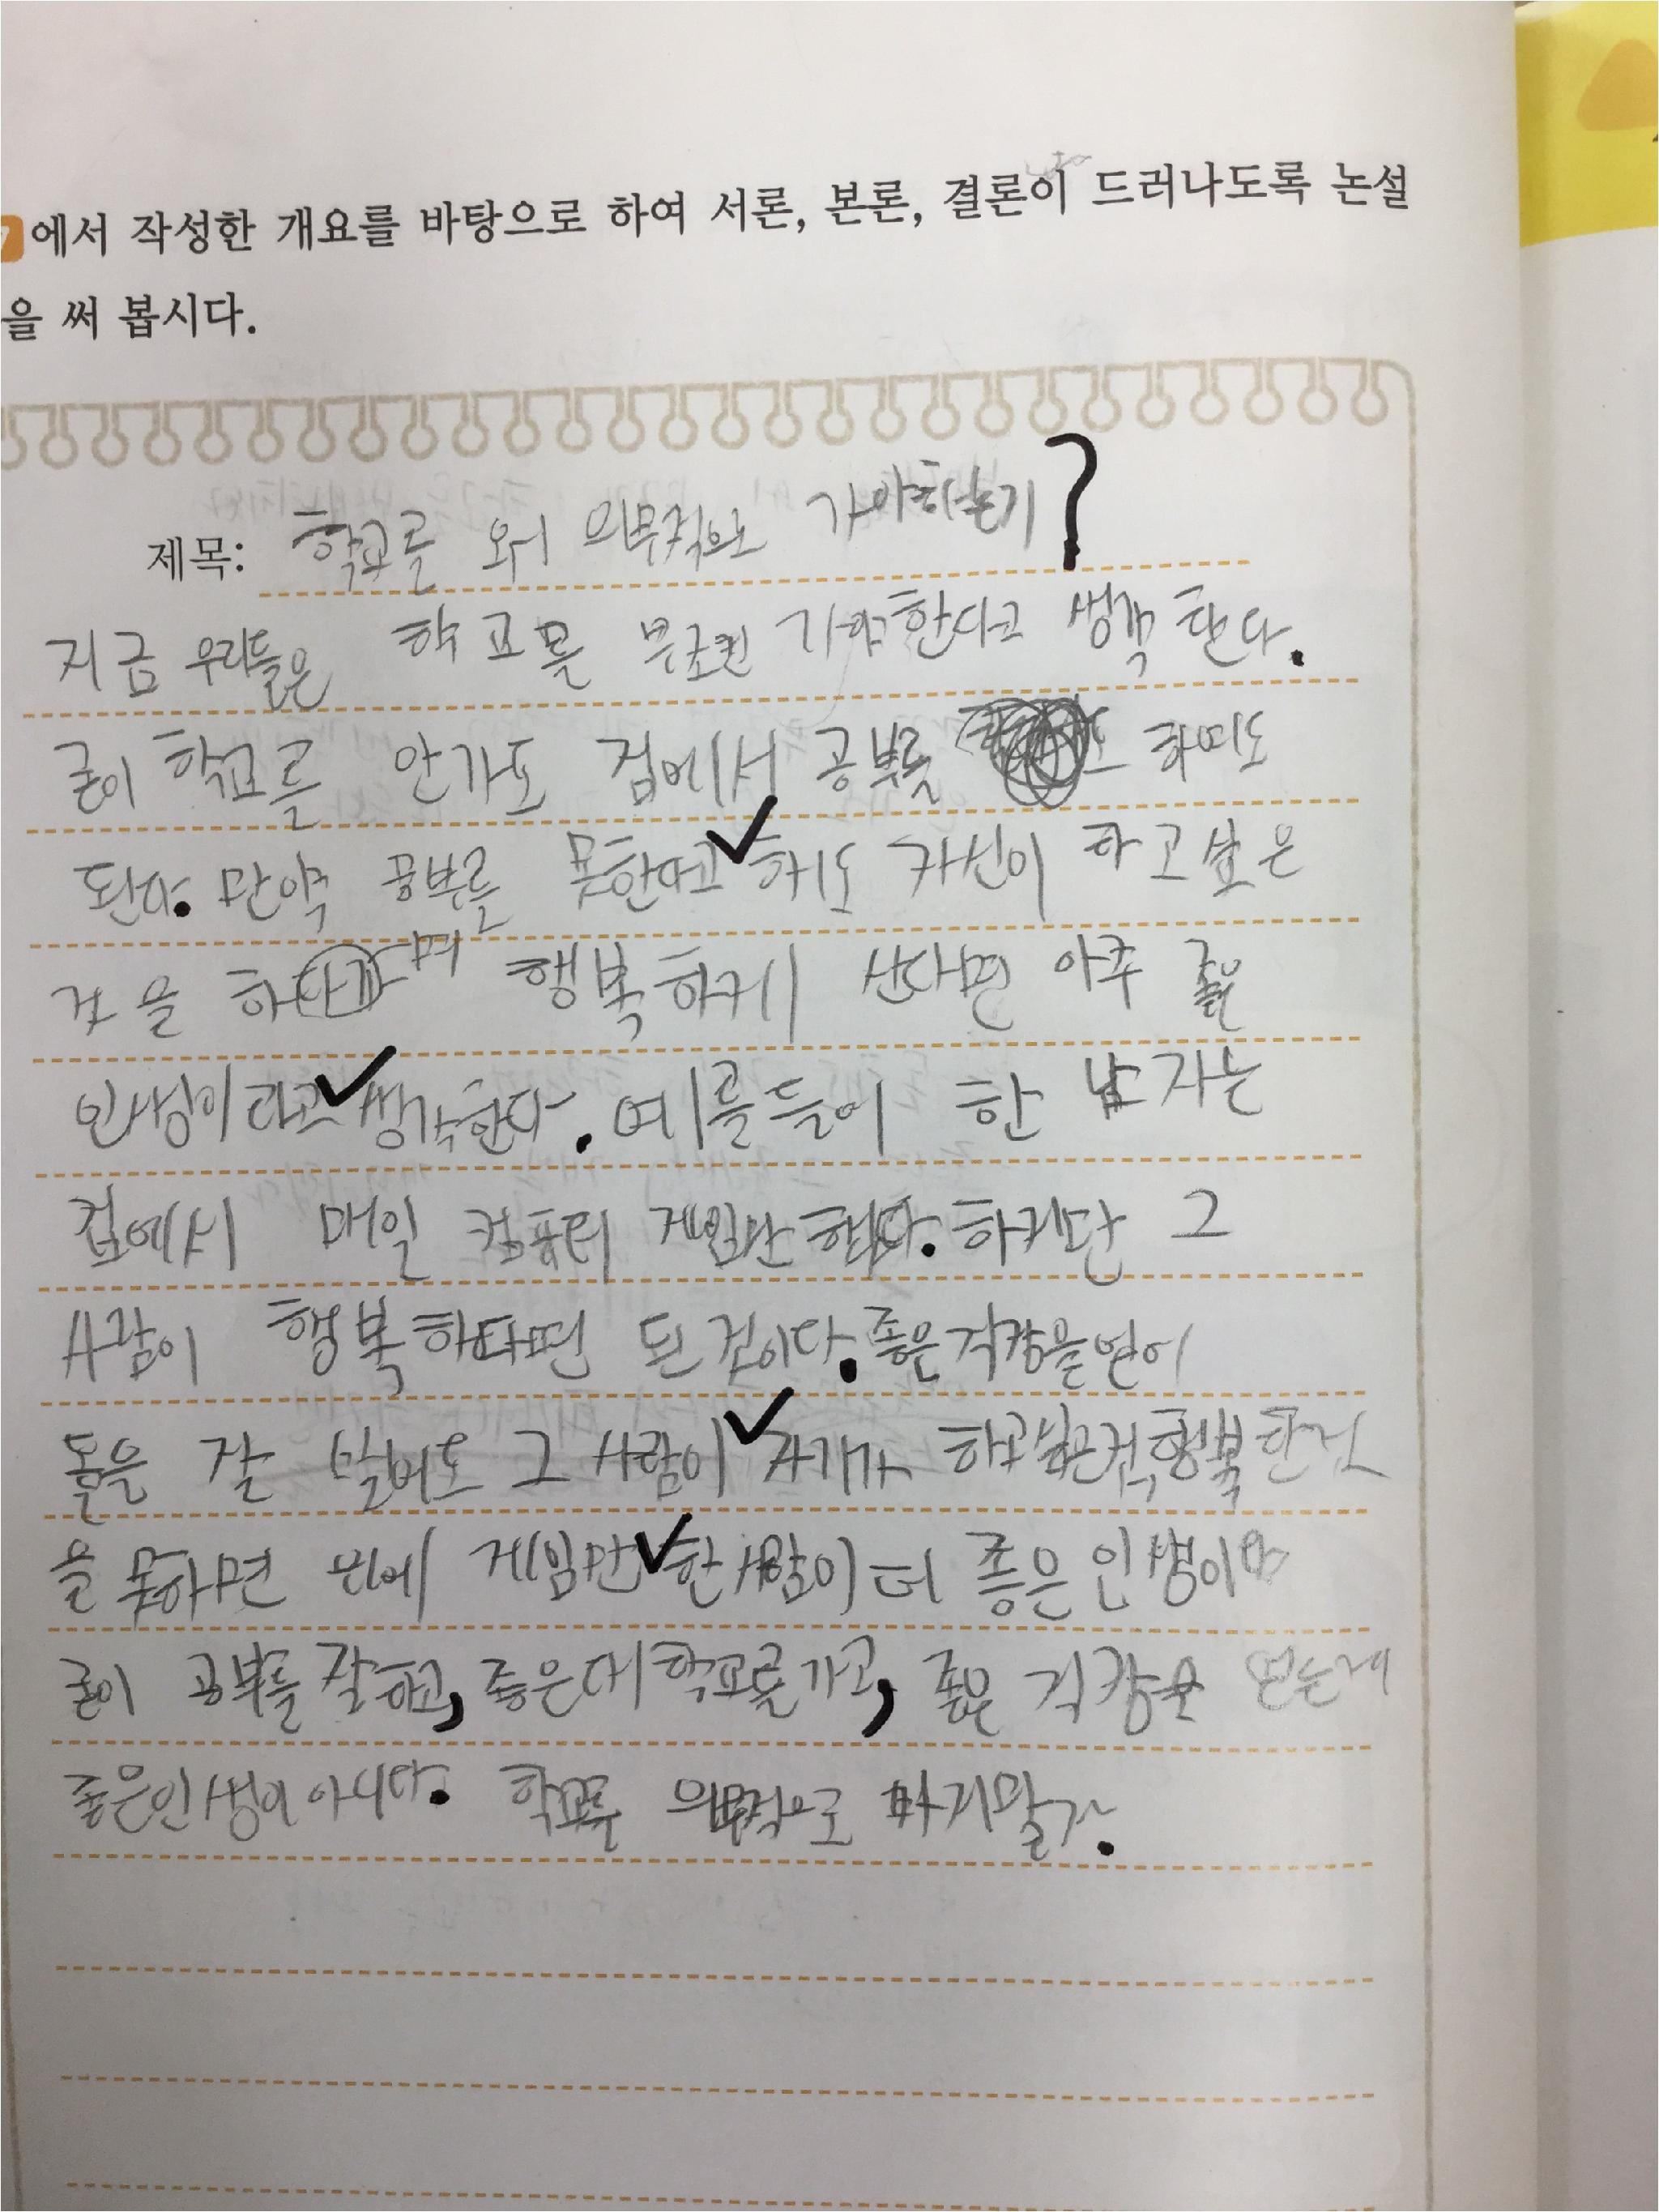 7에서 작성한 개요를 바탕으로 하여 서론, 본론, 결론이 드러나도록 논설
을 써 봅시다.
제목: 학교를 왜 의무적으로 가야하는가?
지금 우리들은 학교를 무조건 가야한다고 생각한다.
굳이 학교를 안가도 집에서 공부를 해도
된다. 만약 공부를 못한다고 해도 자신이 하고싶은
것을 하며 행복하게 산다면 아주 좋은
인생이라고 생각한다. 예를들어 한 남자는
집에서 매일 컴퓨터 게임만 했다. 하지만 그
사람이 행복하다면 된것이다. 좋은직장을얻어
돈을 잘 벌어도 그 사람이 자기가 하고싶은것, 행복한것
을 못하면 위에 게임만 한 사람이 더 좋은 인생이다
굳이 공부를 잘하고, 좋은대학교를가고, 좋은 직장을 얻는게
좋은인생이 아니다. 학교를 의무적으로 하지말자.